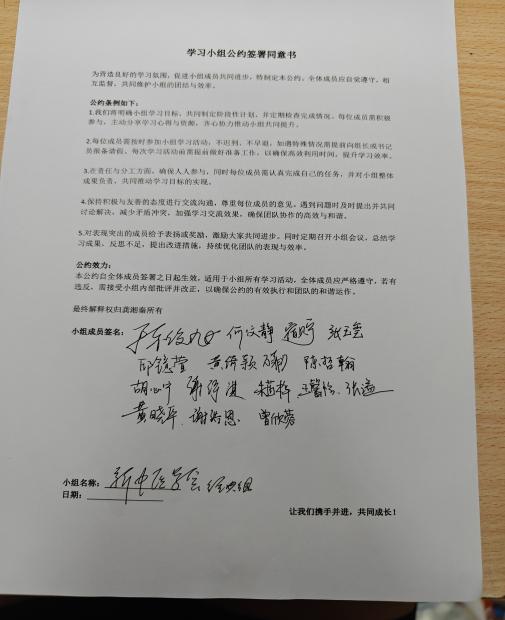 学习小组公约签署同意书
为营造良好的学习氛围，促进小组成员共同进步，特制定本公约。全体成员应自觉遵守，相
互监督，共同维护小组的团结与效率。
公约条例如下：
1.我们将明确小组学习目标，共同制定阶段性计划，并定期检查完成情况。每位成员需积极
参与，主动分享学习心得与资源，齐心协力推动小组共同提升。
2.每位成员需按时参加小组学习活动，不迟到、不早退。如遇特殊情况需提前向组长或书记
员报备请假。每次学习活动前需提前做好准备工作，以确保高效利用时间，提升学习效率。
3.在责任与分工方面，确保人人参与，同时每位成员需认真完成自己的任务，并对小组整体
成果负责，共同推动学习目标的实现。
4.保持积极与友善的态度进行交流沟通，尊重每位成员的意见。遇到问题时及时提出并共同
讨论解决，减少矛盾冲突，加强学习交流效果，确保团队协作的高效与和谐。
5.对表现突出的成员给予表扬或奖励，激励大家共同进步。同时定期召开小组会议，总结学
习成果，反思不足，提出改进措施，持续优化团队的表现与效率。
公约效力：
本公约自全体成员签署之日起生效，适用于小组所有学习活动，全体成员应严格遵守，若有
违反，需接受小组内部批评并改正，以确保公约的有效执行和团队的和谐运作。
最终解释权归龚湘秦所有
小组成员签名： 何文静
邱镜萱
胡心中 张
黄晓平 谢 恩 曾欣蓉
小组名称：新中医学会 经典组
日期：
让我们携手并进，共同成长！